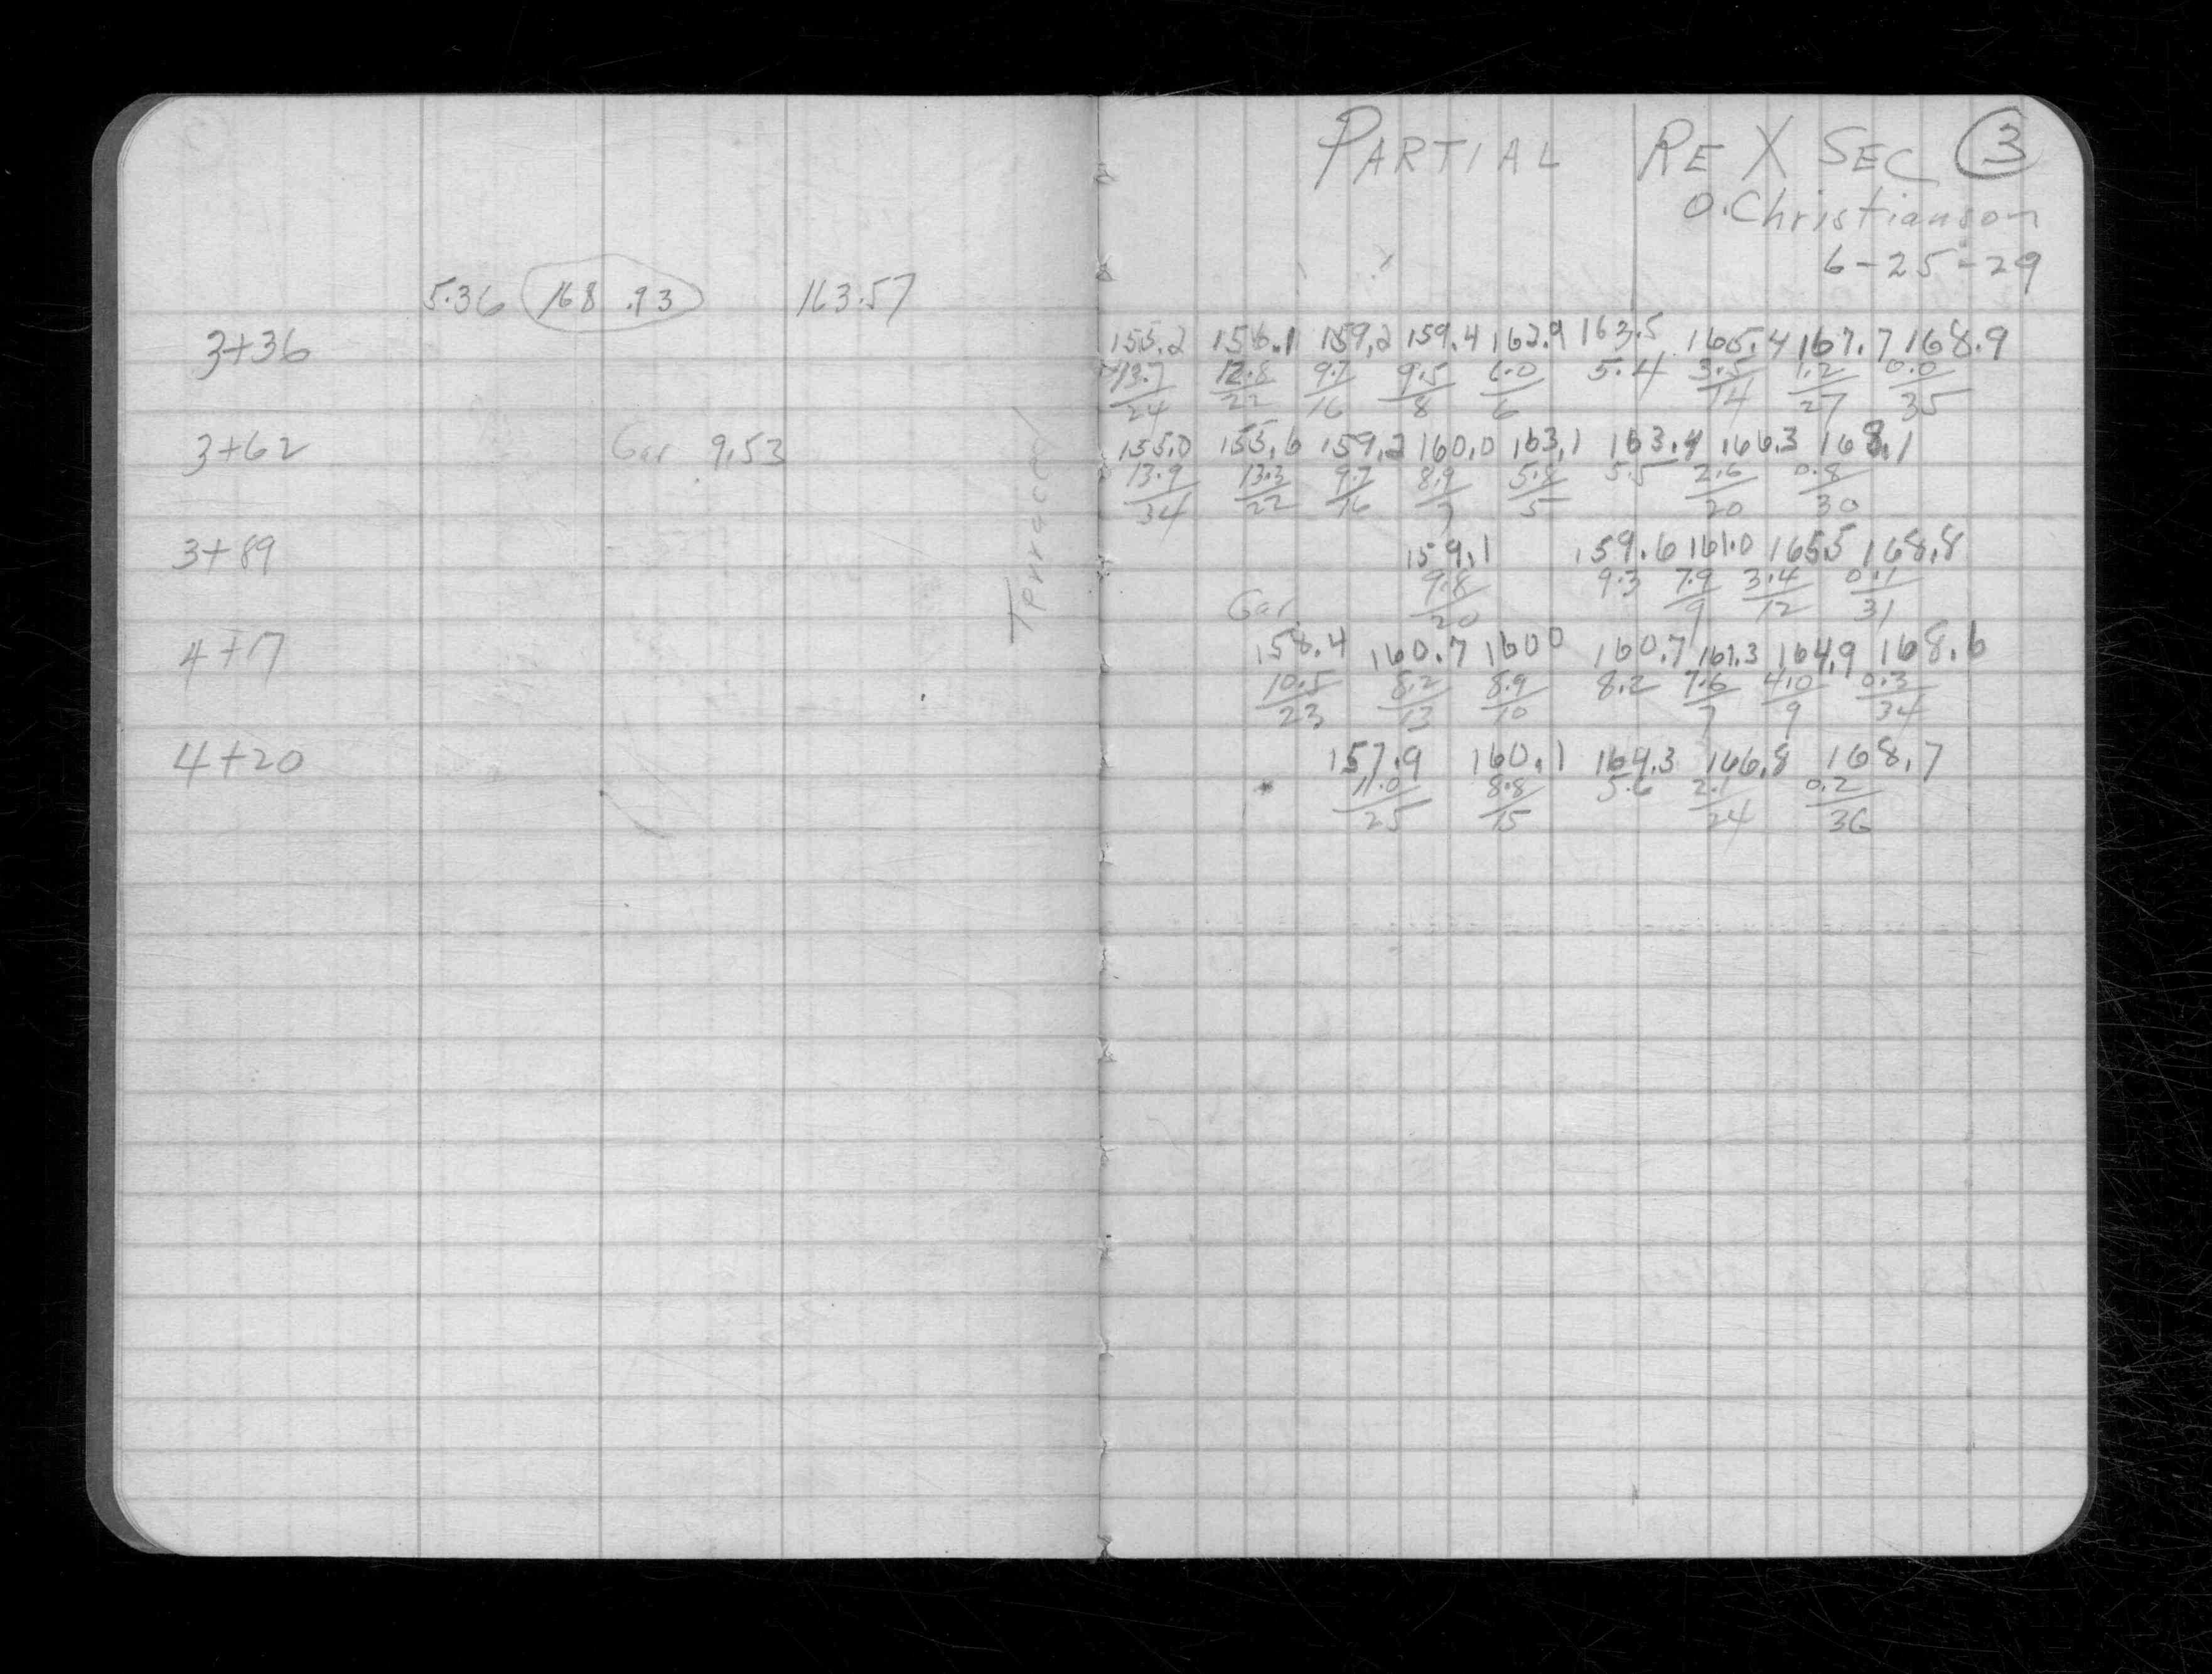 PARTIAL RE X SEC 3
O. Christianson
6-25-29
5.36 168.93 163.57
3+36 155.2 156.1 159.2 159.4 162.9 163.5 165.4 167.7 168.9
13.7 12.8 9.7 9.5 6.0 5.4 3.5 1.2 0.0
24 22 16 8 6 14 27 35
3+62 Gar 9.53 155.0 155.6 159.2 160.0 163.1 163.4 166.3 168.1
13.9 13.3 9.7 8.9 5.8 5.5 2.6 0.8
34 22 16 7 5 20 30
Terraced
3+89 159.1 159.6 161.0 165.5 168.8
9.8 9.3 7.9 3.4 0.1
Gar. 20 9 12 31
4+17 158.4 160.7 160 0 160.7 161.3 164.9 168.6
10.5 8.2 8.9 8.2 7.6 4.0 0.3
23 13 10 7 9 34
4+20 157.9 160.1 169.3 166.8 168.7
11.0 8.8 5.6 2.1 0.2
25 15 24 36